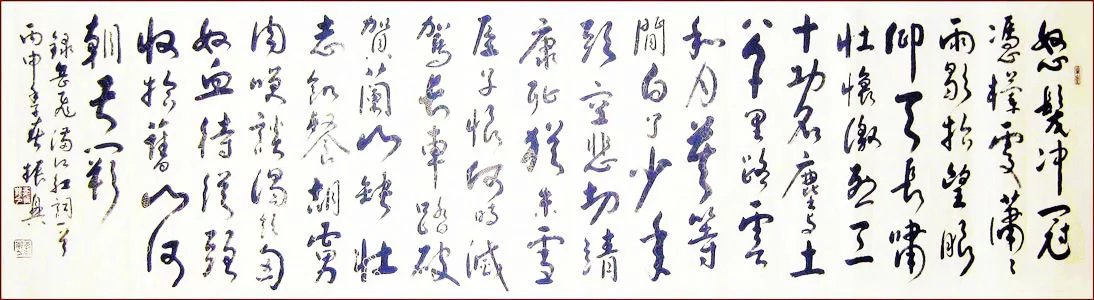 怒髮冲冠
憑欄處瀟〻
雨歇抬望眼
仰天長嘯
壯懷激烈三
十功名塵与土
八千里路雲
和月莫等
閒白了少年
頭空悲切靖
康恥猶未雪
臣子恨何时滅
駕長車踏破
賀蘭山缺壯
志飢餐胡虜
肉笑談渴飲匈
奴血待從頭
收拾舊山河
朝天闕
錄岳飛滿江紅詞一首
丙申年春振興